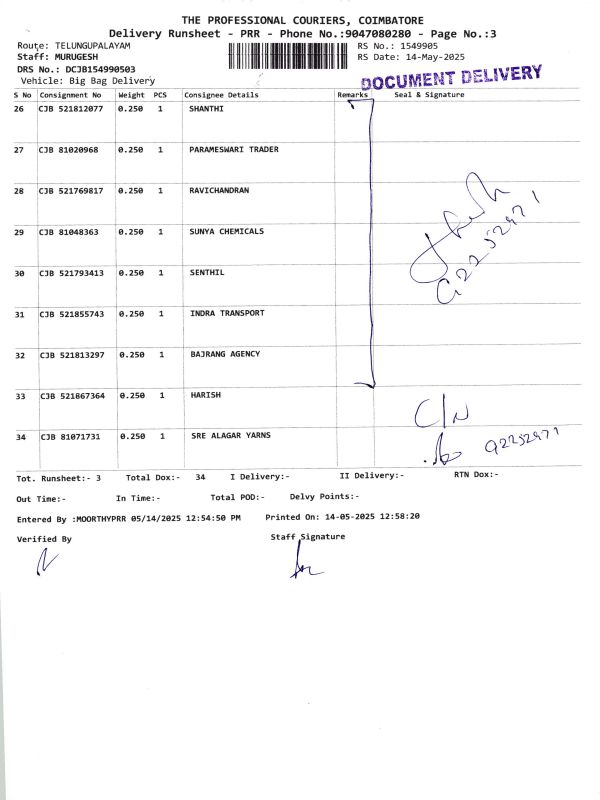 THE PROFESSIONAL COURIERS, COIMBATORE
Delivery Runsheet - PRR - Phone No.:9047080280 - Page No.:3
Route: TELUNGUPALAYAM
RS No.: 1549905
Staff: MURUGESH
RS Date: 14-May-2025
DRS No.: DCJB154990503
Vehicle: Big Bag Delivery
DOCUMENT DELIVERY
S No Consignment No Weight PCS Consignee Details Remarks Seal & Signature
26 CJB 521812077 0.250 1 SHANTHI
27 CJB 81020968 0.250 1 PARAMESWARI TRADER
28 CJB 521769817 0.250 1 RAVICHANDRAN
29 CJB 81048363 0.250 1 SUNYA CHEMICALS
30 CJB 521793413 0.250 1 SENTHIL
31 CJB 521855743 0.250 1 INDRA TRANSPORT
32 CJB 521813297 0.250 1 BAJRANG AGENCY
33 CJB 521867364 0.250 1 HARISH
C/N
34 CJB 81071731 0.250 1 SRE ALAGAR YARNS
Tot. Runsheet:- 3 Total Dox:- 34 I Delivery:- II Delivery:- RTN Dox:-
Out Time:- In Time:- Total POD:- Delvy Points:-
Entered By :MOORTHYPRR 05/14/2025 12:54:50 PM Printed On: 14-05-2025 12:58:20
Verified By Staff Signature